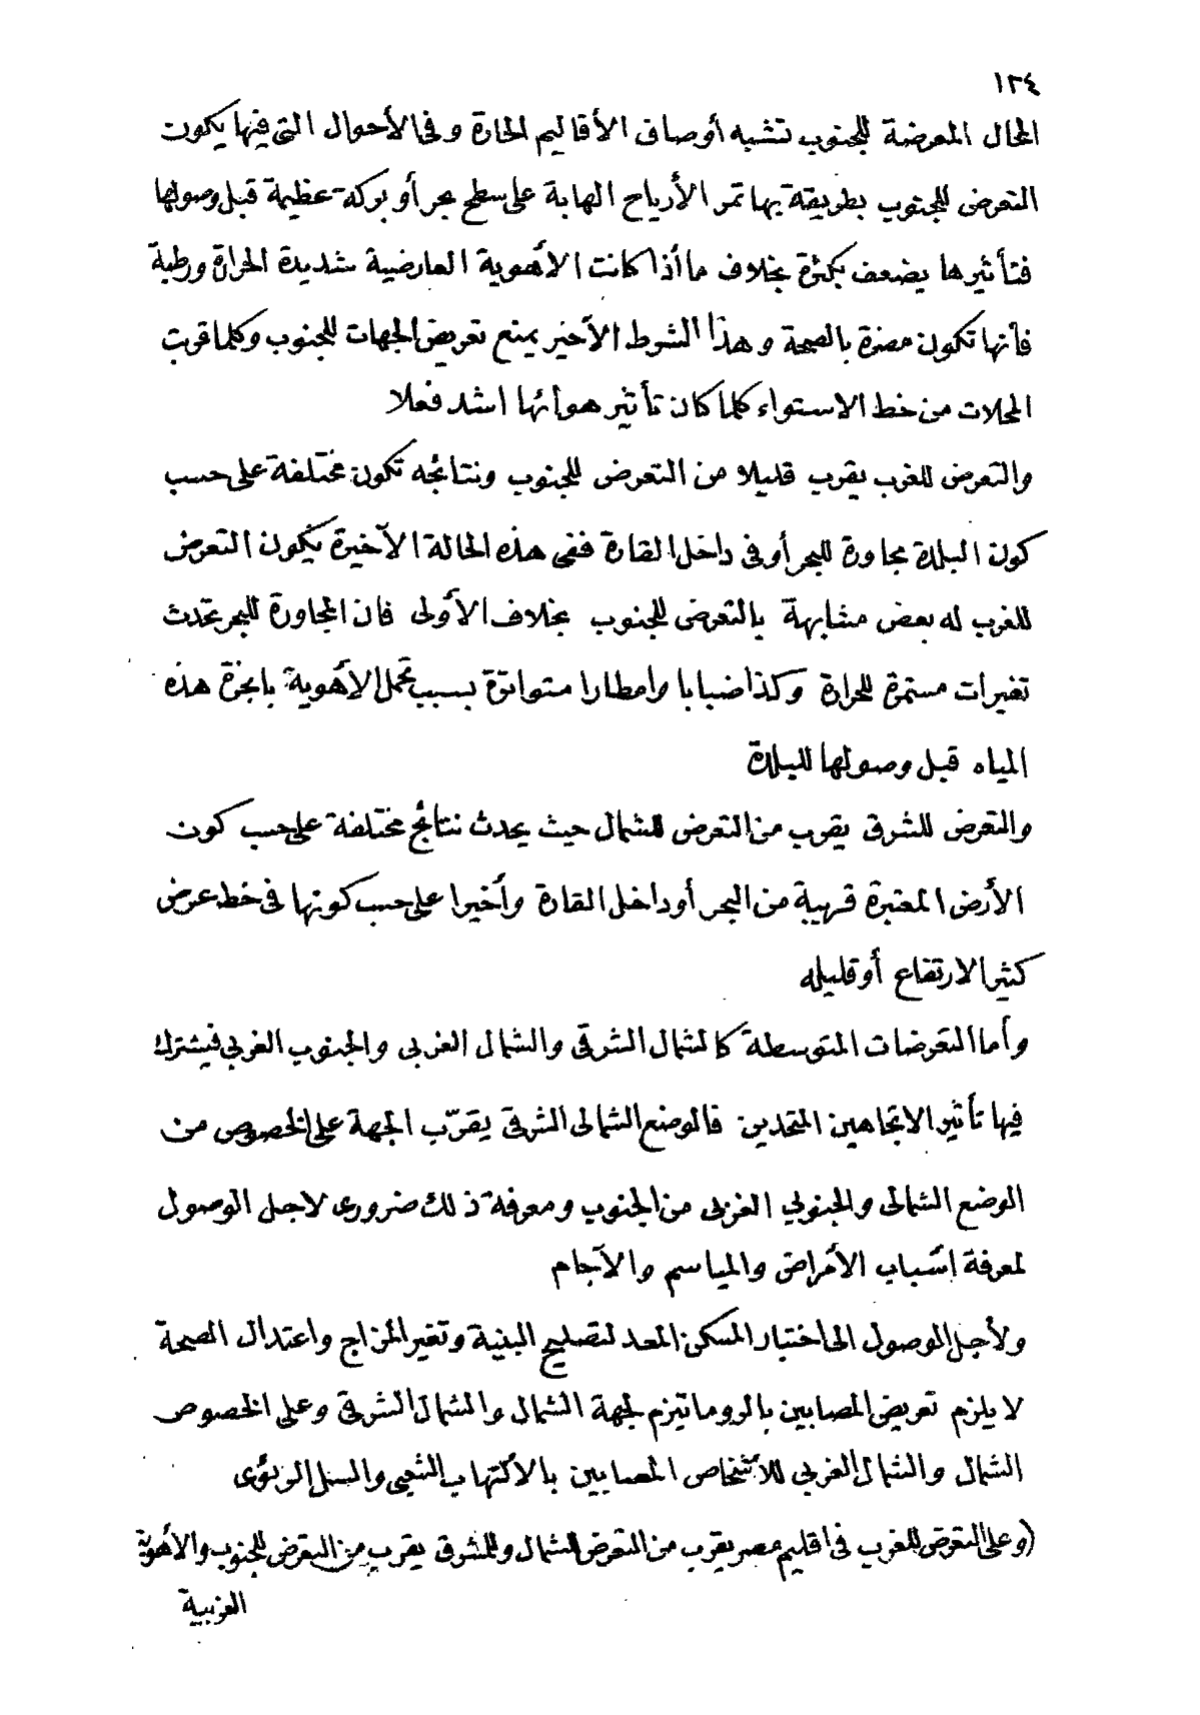 ١٣٤
المحال المعرضة للجنوب تشبه أوصاف الأقاليم الحارة وفى الأحوال التى فيها يكون
التعرض للجنوب بطريقة بها تمر الأرياح الهابة على سطح بحر أو بركة عظيمة قبل وصولها
فتأثيرها يضعف بكثرة بخلاف ما أذا كانت الأهوية العارضية شديدة الحرارة ورطبة
فأنها تكون مضرة بالصحة وهذا الشرط الأخير يمنع تعريض الجهات للجنوب وكلما قربت
المحلات من خط الاستواء كلما كان تأثير هوائها اشد فعلا
والتعرض للغرب يقرب قليلا من التعرض للجنوب ونتائجه تكون مختلفة على حسب
كون البلدة مجاورة للبحر أو فى داخل القارة ففى هذه الحالة الأخيرة يكون التعرض
للغرب له بعض مشابهة بالتعرض للجنوب بخلاف الأولى فان المجاورة للبحر تحدث
تغيرات مستمرة للحرارة وكذا ضبابا وامطارا متواترة بسبب تحمل الأهوية بابخرة هذه
المياه قبل وصولها للبلدة
والتعرض للشرق يقرب من التعرض للشمال حيث يحدث نتائج مختلفة على حسب كون
الأرض المعتبرة قريبة من البحر أو داخل القارة وأخيرا على حسب كونها فى خط عرض
كثير الارتفاع أو قليله
وأما التعرضات المتوسطة كالشمال الشرقى والشمال الغربى والجنوب الغربى فيشترك
فيها تأثير الاتجاهين المتحدين فالوضع الشمالى الشرقى يقرّب الجهة على الخصوص من
الوضع الشمالى والجنوبى الغربى من الجنوب ومعرفة ذلك ضرورى لاجل الوصول
لمعرفة اسباب الأمراض والمياسم والآجام
ولأجل الوصول الى اختيار المسكن المعد لتصليح البنية وتغير المزاج واعتدال الصحة
لا يلزم تعريض المصابين بالروماتيزم لجهة الشمال والشمال الشرقى وعلى الخصوص
الشمال والشمال الغربى للأشخاص المصابين بالالتهاب الشعبى والسل الرئوى
(وعلى التعرض للغرب فى اقليم مصر يقرب من التعرض للشمال وللشرق يقرب من التعرض للجنوب والأهوية
الغربية